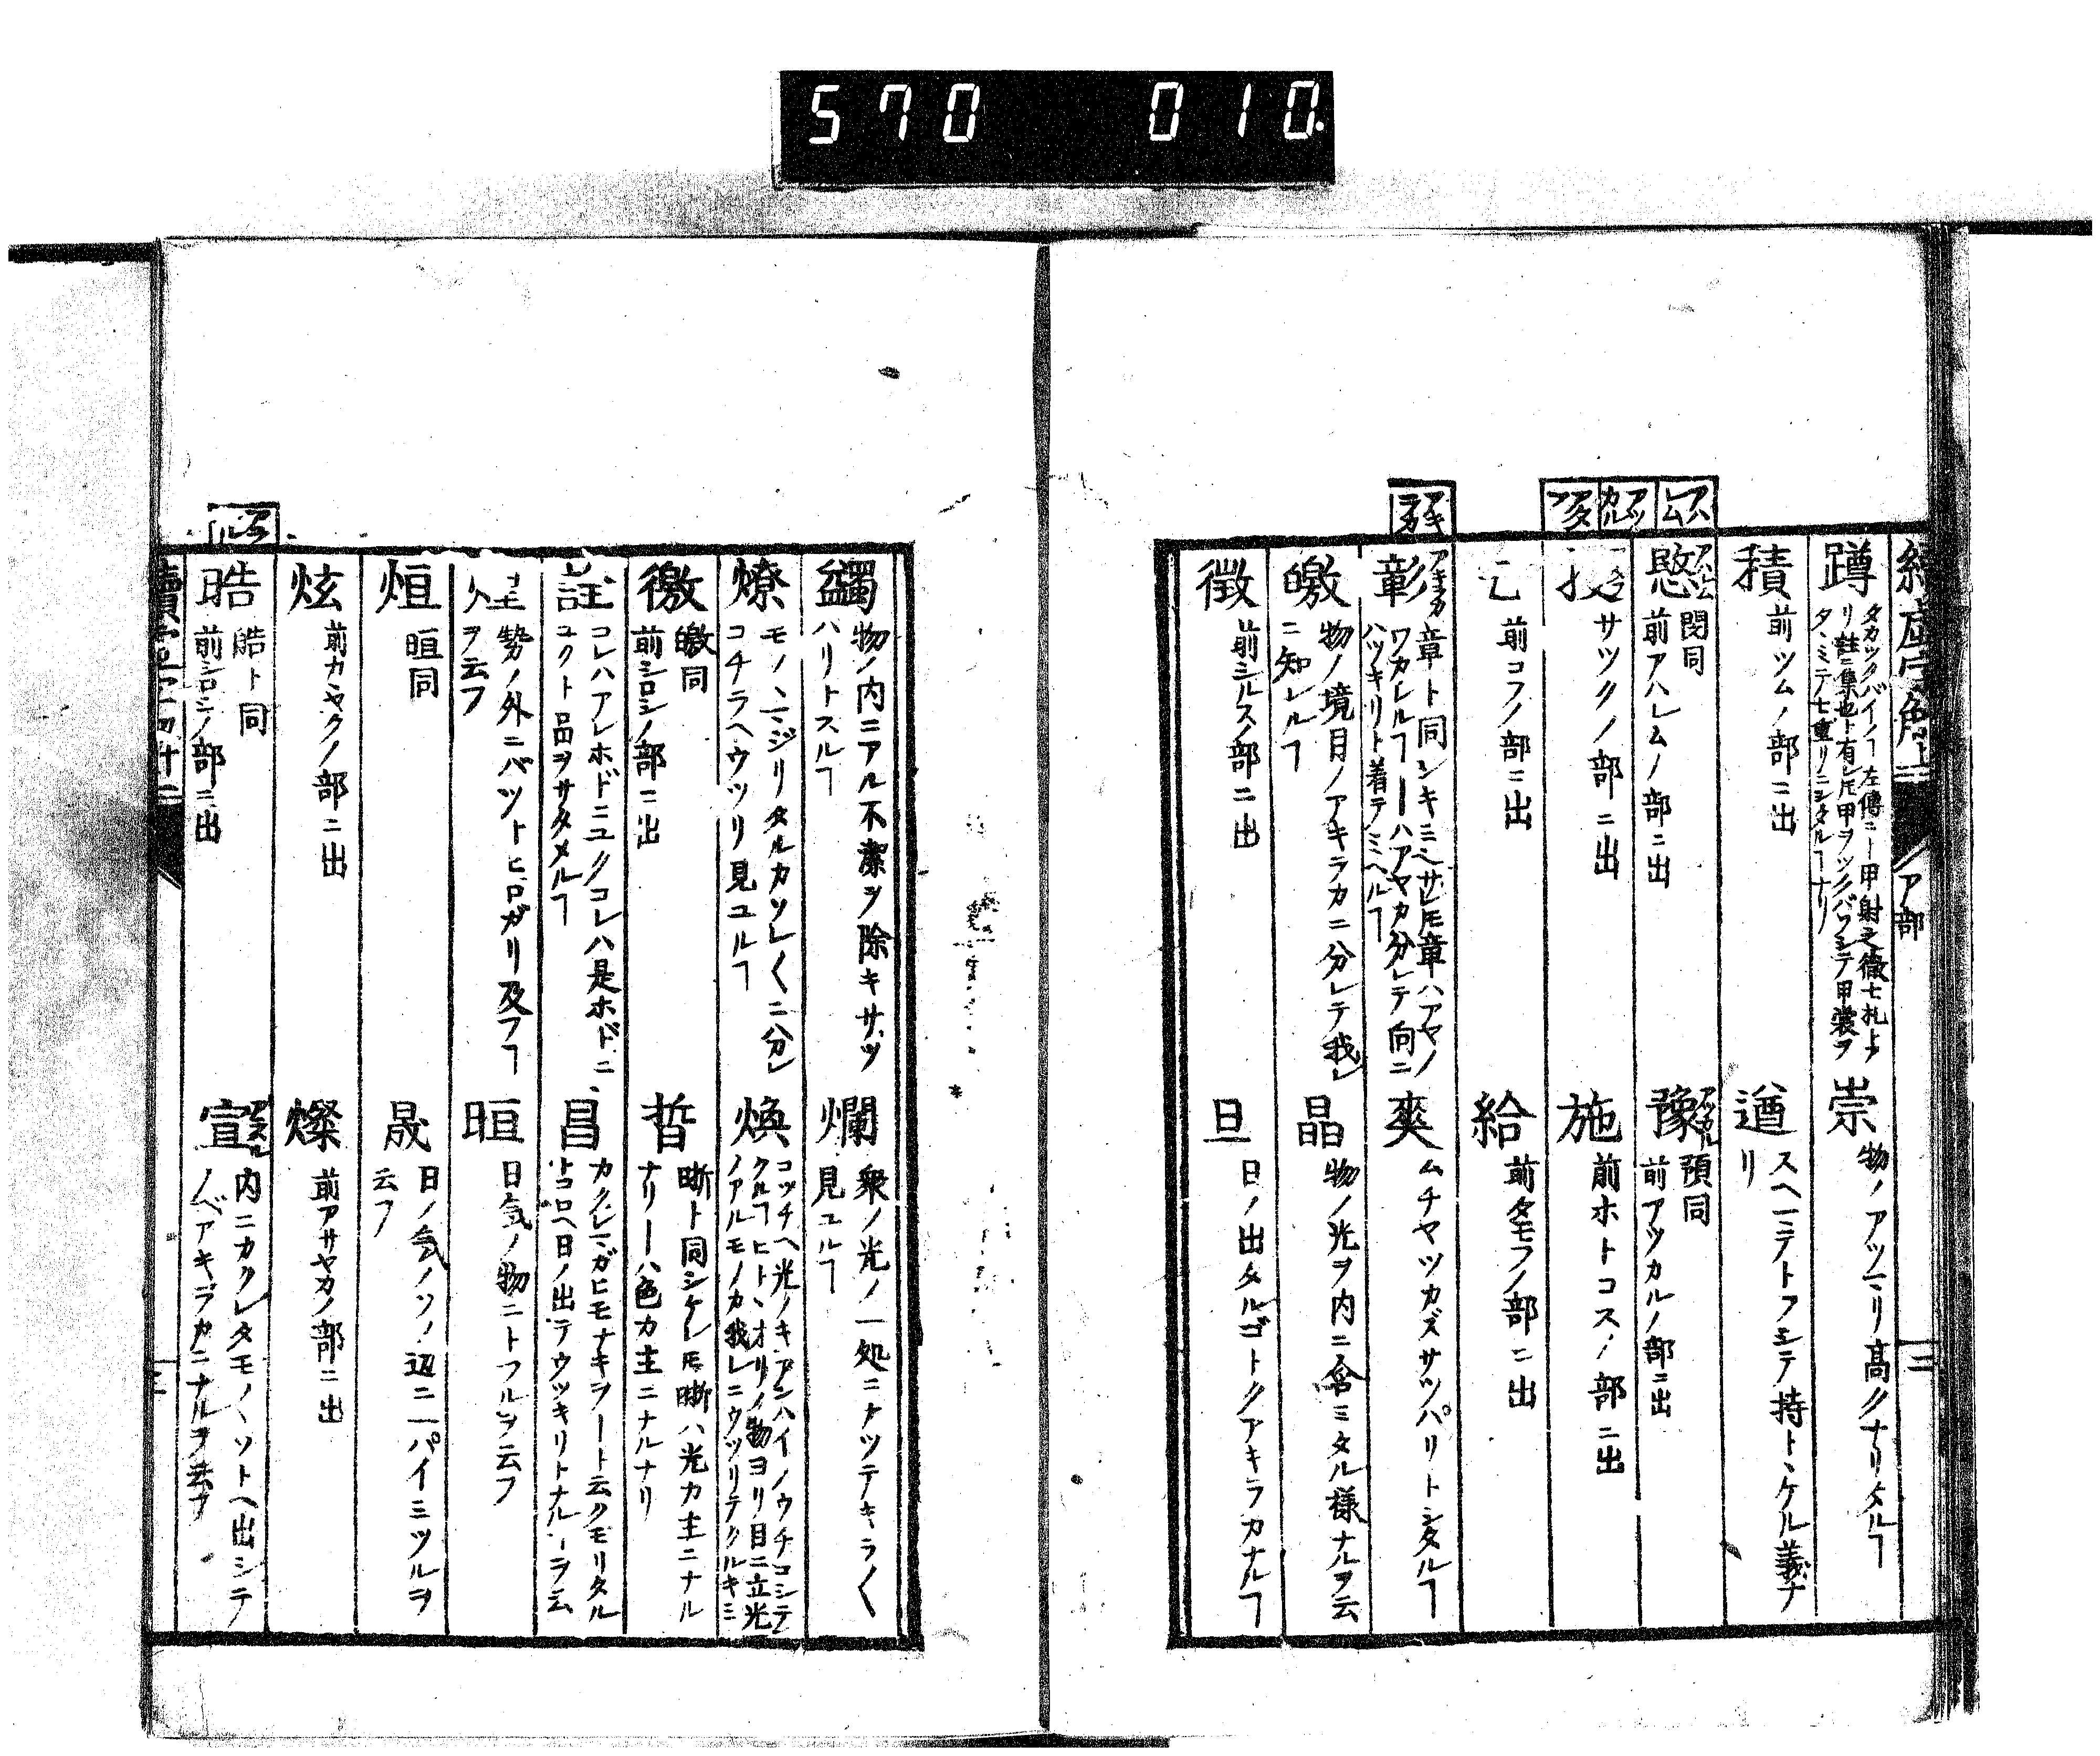 570 010.
ア部
三
蹲
タカツクバイノヿ左傳ニ一甲射之徹七札トア
リ註ニ集也ト有レ𪜈甲ヲツクバワシテ甲裳ヲ
タヽミテ七重リニシタルヿナリ
崇
物ノアツマリ高クナリタルヿ
積
前ツムノ部ニ出
遒
スヘ一ミテトフシテ持トヽケル義ナ
リ
アハレム
愍
閔同
前アハレムノ部ニ出
アツカル
豫
預同
前アツカルノ部ニ出
サツクノ部ニ出
施
前ホトコスノ部ニ出
前コフノ部ニ出
給
前タモフノ部ニ出
アキラカ
彰
章ト同シキミヘサレ𪜈章ハアヤノ
ワカレルヿ一ハアヤカ分レテ向ニ
ハツキリト着テミヘルヿ
爽
ムチヤツカズサツパリトシタルヿ
皦
物ノ境目ノアキラカニ分レテ我レ
ニ知レルヿ
晶
物ノ光ヲ内ニ含ミタル様ナルヲ云
徴
前シルスノ部ニ出
旦
日ノ出タルゴトクアキラカナルヿ
蠲
物ノ内ニアル不潔ヲ除キサツ
ハリトスルヿ
爛
衆ノ光ノ一処ニアツテキラ〱
見ユルヿ
燎
モノヽマジリタルカソレ〱ニ分レ
コチラヘウツリ見ユルヿ
煥
コツチヘ光ノキアンハイノウチコシテ
クルヿヒトヽオリノ物ヨリ目ニ立光
ノアルモノカ我レニウツリテクルキミ
徼
皦同
前シロシノ部ニ出
晢
晣ト同シケレ𪜈晣ハ光カ主ニナル
ナリ一ハ色カ主ニナルナリ
註
コレハアレホドニユクコレハ是ホドニ
ユクト品ヲサタメルヿ
昌
カクレマガヒモナキヲ一ト云クモリタル
トコロヘ日ノ出テウツキリトナルヲ云
勢ノ外ニバツトヒロガリ及フヿ
ヲ云フ
晅
日気ノ物ニトフルヲ云フ
烜
晅同
晟
日ノ気ノソノ辺ニ一パイミツルヲ
云フ
炫
前カヽヤクノ部ニ出
燦
前アサヤカノ部ニ出
晧
皓ト同
前シロシノ部ニ出
宣
内ニカクレタモノヽソトヘ出シテ
ノベアキラカニナルヲ云フ
三